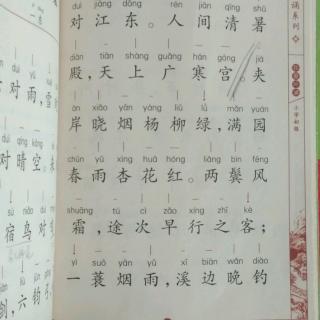 duì jiāng dōng rén jiān qīng shǔ
对江东。人间清暑
diàn tiān shàng guǎng hán gōng jiā
殿,天上广寒宫。夹
àn xiǎo yān yáng liǔ lǜ mǎn yuán
岸晓烟杨柳绿,满园
chūn yǔ xìng huā hóng liǎng bìn fēng
春雨杏花红。两鬓风
shuāng tú cì zǎo xíng zhī kè
霜,途次早行之客;
yì suō yān yǔ xī biān wǎn diào
一蓑烟雨,溪边晚钓
对雨,雪
对晴空。来
宿鸟对
剑,六钧弓
诵系列
小学初级